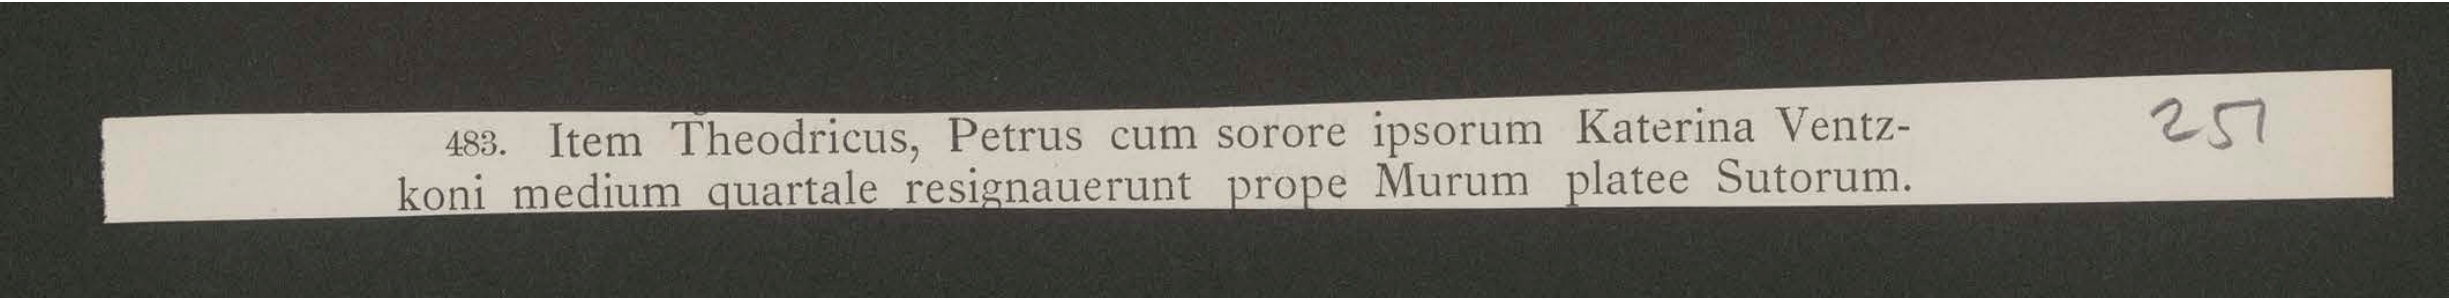 483. Item Theodricus, Petrus cum sorore ipsorum Katerina Ventz- 251
koni medium quartale resignauerunt prope Murum platee Sutorum.